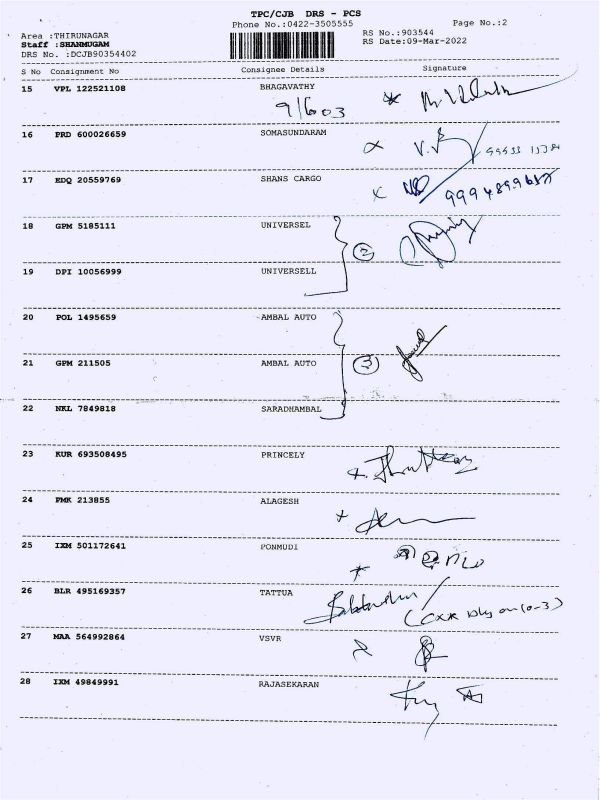 TPC/CJB DRS - PCS
Phone No.:0422-3505555 Page No.:2
Area :THIRUNAGAR RS No.:903544
Staff :SHANMUGAM RS Date:09-Mar-2022
DRS No. :DCJB90354402
S No Consignment No Consignee Details Signature
15 VPL 122521108 BHAGAVATHY
9/603
16 PRD 600026659 SOMASUNDARAM
17 EDQ 20559769 SHANS CARGO
18 GPM 5185111 UNIVERSEL
2
19 DPI 10056999 UNIVERSELL
20 POL 1495659 AMBAL AUTO
21 GPM 211505 AMBAL AUTO
3
22 NKL 7849818 SARADHAMBAL
23 KUR 693508495 PRINCELY
24 PMK 213855 ALAGESH
25 IXM 501172641 PONMUDI
26 BLR 495169357 TATTUA
27 MAA 564992864 VSVR
28 IXM 49849991 RAJASEKARAN